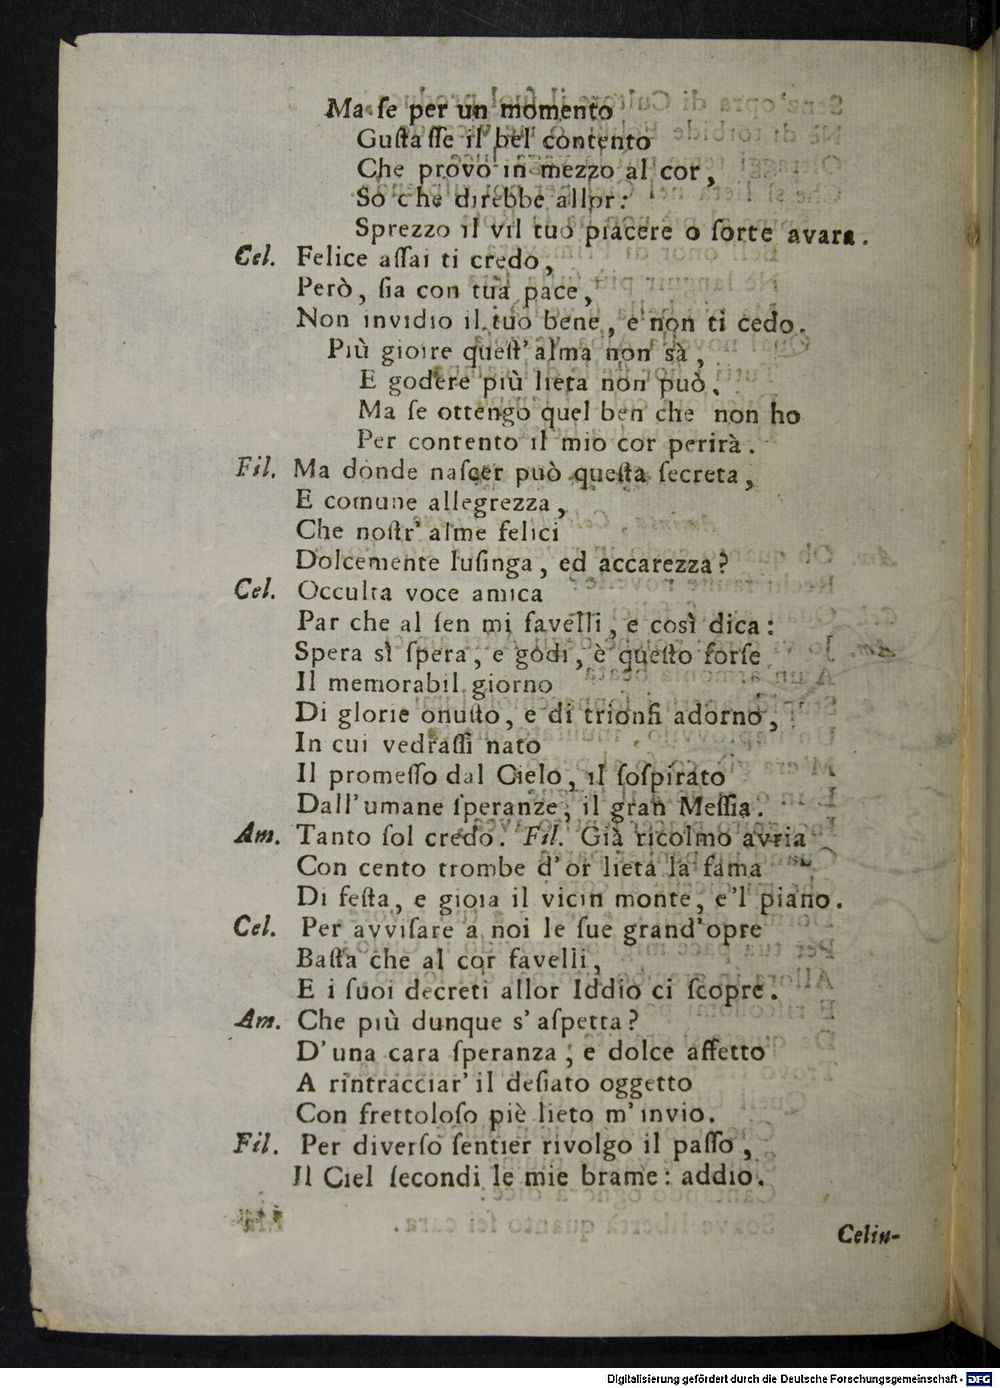 Ma ſe per un momento
Guſtaſſe il bel contento
Che provo in mezzo al cor,
So che direbbe allor:
Sprezzo il vil tuo piacere o ſorte avara.
Cel. Felice aſſai ti credo,
Però, ſia con tua pace,
Non invidio il tuo bene, e non ti cedo.
Più gioire queſt' alma non sà,
E godere più lieta non può.
Ma ſe ottengo quel ben che non ho
Per contento il mio cor perirà.
Fil. Ma donde naſcer può queſta ſecreta,
E comune allegrezza,
Che noſtr' alme felici
Dolcemente luſinga, ed accarezza?
Cel. Occulta voce amica
Par che al ſen mi favelli, e così dica:
Spera sì ſpera, e godi, è queſto forſe
Il memorabil giorno
Di glorie onuſto, e di trionfi adorno,
In cui vedraſſi nato
Il promeſſo dal Cielo, il ſoſpirato
Dall' umane ſperanze, il gran Meſſia.
Am. Tanto ſol credo. Fil. Già ricolmo avria
Con cento trombe d' or lieta la fama
Di feſta, e gioia il vicin monte, e 'l piano.
Cel. Per avviſare a noi le ſue grand' opre
Baſta che al cor favelli,
E i ſuoi decreti allor Iddio ci ſcopre.
Am. Che più dunque s' aſpetta?
D' una cara ſperanza, e dolce affetto
A rintracciar' il deſiato oggetto
Con frettoloſo piè lieto m' invio.
Fil. Per diverſo ſentier rivolgo il paſſo,
Il Ciel ſecondi le mie brame: addio.
Celin-
Digitalisierung gefördert durch die Deutsche Forschungsgemeinschaft - DFG